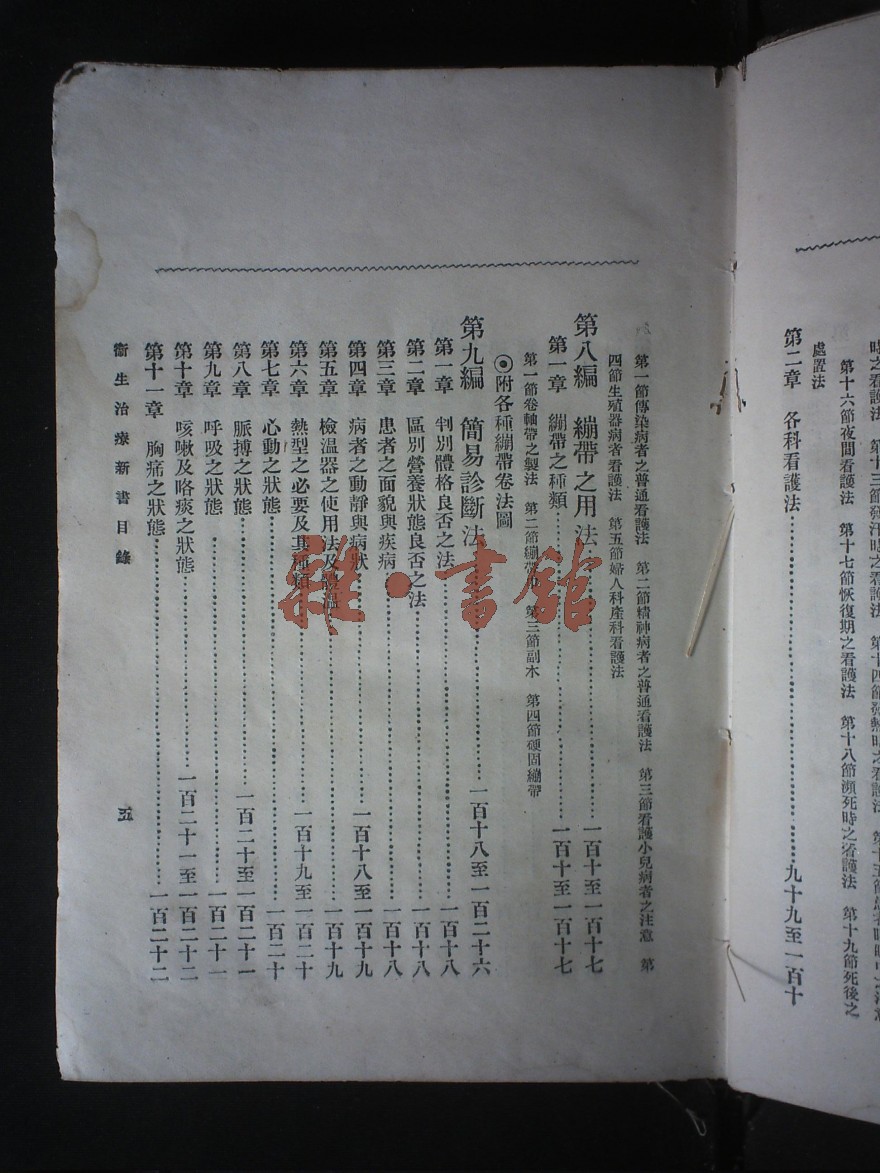 第十六節夜間看護法　第十七節恢復期之看護法　第十八節瀕死時之看護法　第十九節死後之
處置法
第二章　各科看護法⋯⋯九十九至一百十
第一節傳染病者之普通看護法　第二節精神病者之普通看護法　第三節看護小兒病者之注意　第
四節生殖器病者看護法　第五節婦人科產科看護法
第八編　繃帶之用法⋯⋯一百十至一百十七
第一章　繃帶之種類⋯⋯一百十至一百十七
第一節卷軸帶之製法　第二節繃帶　第三節副木　第四節硬固繃帶
◉附各種繃帶卷法圖
第九編　簡易診斷法⋯⋯一百十八至一百二十六
第一章　判別體格良否之法⋯⋯一百十八
第二章　區別營養狀態良否之法⋯⋯一百十八
第三章　患者之面貌與疾病⋯⋯一百十八
第四章　病者之動靜與病狀⋯⋯一百十八至一百十九
第五章　檢溫器之使用法及⋯⋯一百十九
第六章　熱型之必要及其種類⋯⋯一百十九至一百二十
第七章　心動之狀態⋯⋯一百二十
第八章　脈搏之狀態⋯⋯一百二十至一百二十一
第九章　呼吸之狀態⋯⋯一百二十一
第十章　咳嗽及咯痰之狀態⋯⋯一百二十一至一百二十二
第十一章　胸痛之狀態⋯⋯一百二十二
衞生治療新書目錄
五
雜·書館